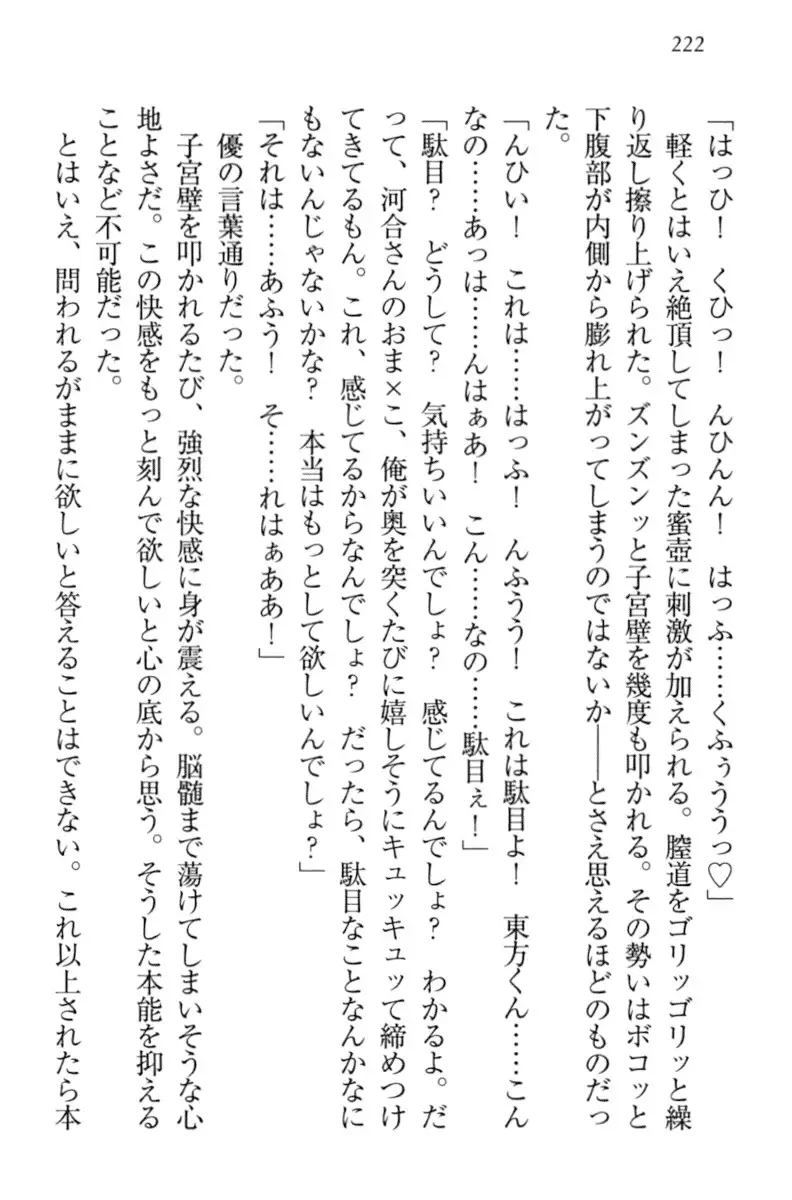 222
「はっひ！　くひっ！　んひんん！　はっふ……くふぅううっ♡」
　軽くとはいえ絶頂してしまった蜜壺に刺激が加えられる。膣道をゴリッゴリッと繰
り返し擦り上げられた。ズンズンッと子宮壁を幾度も叩かれる。その勢いはボコッと
下腹部が内側から膨れ上がってしまうのではないか――とさえ思えるほどのものだっ
た。
「んひい！　これは……はっふ！　んふうう！　これは駄目よ！　東方くん……こん
なの……あっは……んはぁあ！　こん……なの……駄目ぇ！」
「駄目？　どうして？　気持ちいいんでしょ？　感じてるんでしょ？　わかるよ。だ
って、河合さんのおま×こ、俺が奥を突くたびに嬉しそうにキュッキュッって締めつけ
てきてるもん。これ、感じてるからなんでしょ？　だったら、駄目なことなんかなに
もないんじゃないかな？　本当はもっとして欲しいんでしょ？」
「それは……あふう！　そ……れはぁああ！」
　優の言葉通りだった。
　子宮壁を叩かれるたび、強烈な快感に身が震える。脳髄まで蕩けてしまいそうな心
地よさだ。この快感をもっと刻んで欲しいと心の底から思う。そうした本能を抑える
ことなど不可能だった。
　とはいえ、問われるがままに欲しいと答えることはできない。これ以上されたら本